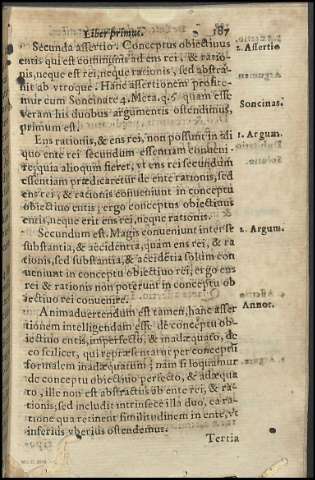 Liber primus. 187
Secunda assertio. Conceptus obiectiuus
2. Assertio
entis qui est communis ad ens rei, & ratio-
nis, neque est rei, neque rationis, sed abstra-
hit ab vtroque. Hanc assertionem profite-
mur cum Soncinate 4. Meta. q. 5. quam esse
Soncinas.
veram his duobus argumentis ostendimus,
primum est.
Ens rationis, & ens rei, non possunt in ali
1. Argum.
quo ente rei secundum essentiam conueni-
re, quia alioqui fieret, vt ens rei secundum
essentiam prædicaretur de ente rationis, sed
ens rei, & rationis conueniunt in conceptu
obiectiuo entis; ergo conceptus obiectiuus
entis, neque erit ens rei, neque rationis.
Secundum est. Magis conueniunt inter se
2. Argum.
substantia, & accidentia, quam ens rei, & ra
tionis, sed substantia, & accidētia solum con
ueniunt in conceptu obiectiuo rei; ergo ens
rei & rationis non poterunt in conceptu ob
iectiuo rei conuenire.
Annot.
Animaduertendum est tamen, hanc asser
tionem intelligendam esse de conceptu ob-
iectiuo entis, imperfecto, & inadæquato, de
eo scilicet, qui repræsentatur per conceptū
formalem inadæquatum; nam si loquamur
de conceptu obiectiuo perfecto, & adæqua
to, ille non est abstractus ab ente rei, & ra-
tionis, sed includit intrinsece illa duo, ea ra-
tione qua retinent similitudinem in ente, vt
inferius vberius ostendemus.
Tertia